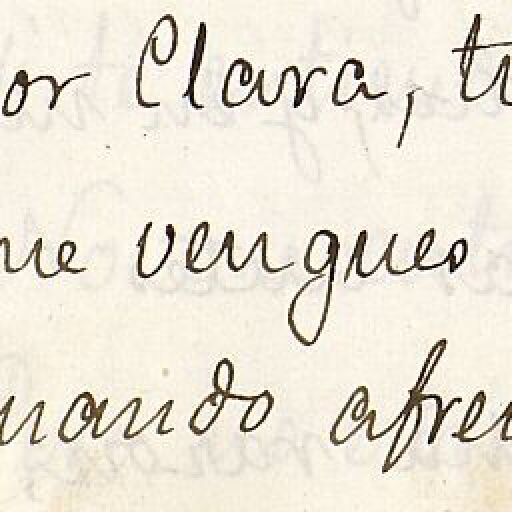 or Clara, tu
me vengues
uando afren